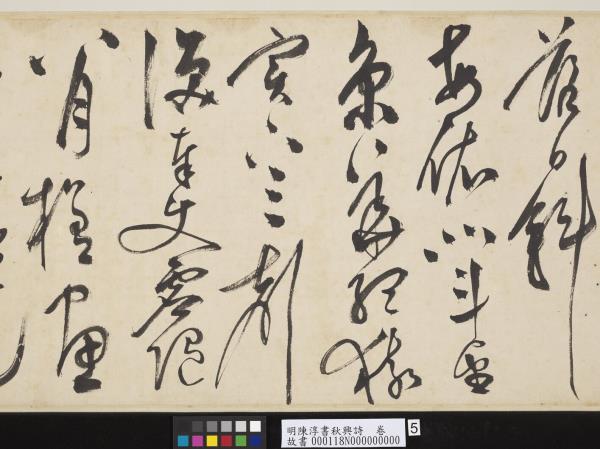 落日斜
每依北斗望
京華聽猿
實下三聲
淚奉使虛隨
八月槎畫
明陳淳書秋興詩　卷 5
故書 000118N000000000